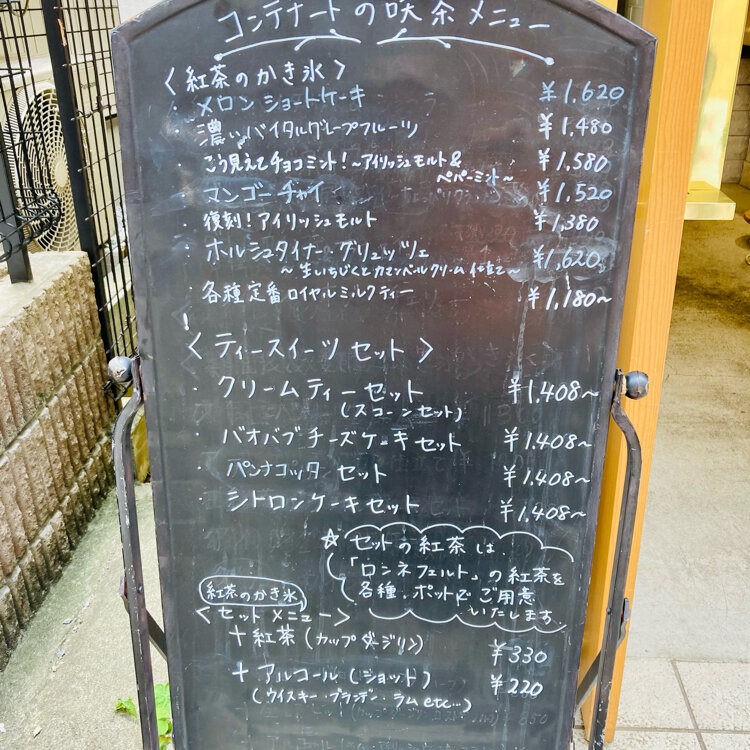 コンテナートの喫茶メニュー
〈紅茶のかき氷〉
・メロンショートケーキ ¥1,620
・濃いバイタルグレープフルーツ ¥1,480
・こう見えてチョコミント!～アイリッシュモルト&ペパーミント～ ¥1,580
・マンゴーチャイ ¥1,520
・復刻!アイリッシュモルト ¥1,380
・ホルシュタイナーグリュッツェ ¥1,620
～生いちじくとカマンベールクリーム仕立て～
・各種定番ロイヤルミルクティー ¥1,180～
〈ティースイーツセット〉
・クリームティーセット ¥1,408～
(スコーンセット)
・バオバブチーズケーキセット ¥1,408～
・パンナコッタセット ¥1,408～
・シトロンケーキセット ¥1,408～
☆セットの紅茶は、
「ロンネフェルト」の紅茶を
各種、ポットでご用意
いたします。
紅茶のかき氷
〈セットメニュー〉
+紅茶(カップダージリン) ¥330
+アルコール(ショット) ¥220
(ウイスキー・ブランデー・ラムetc…)